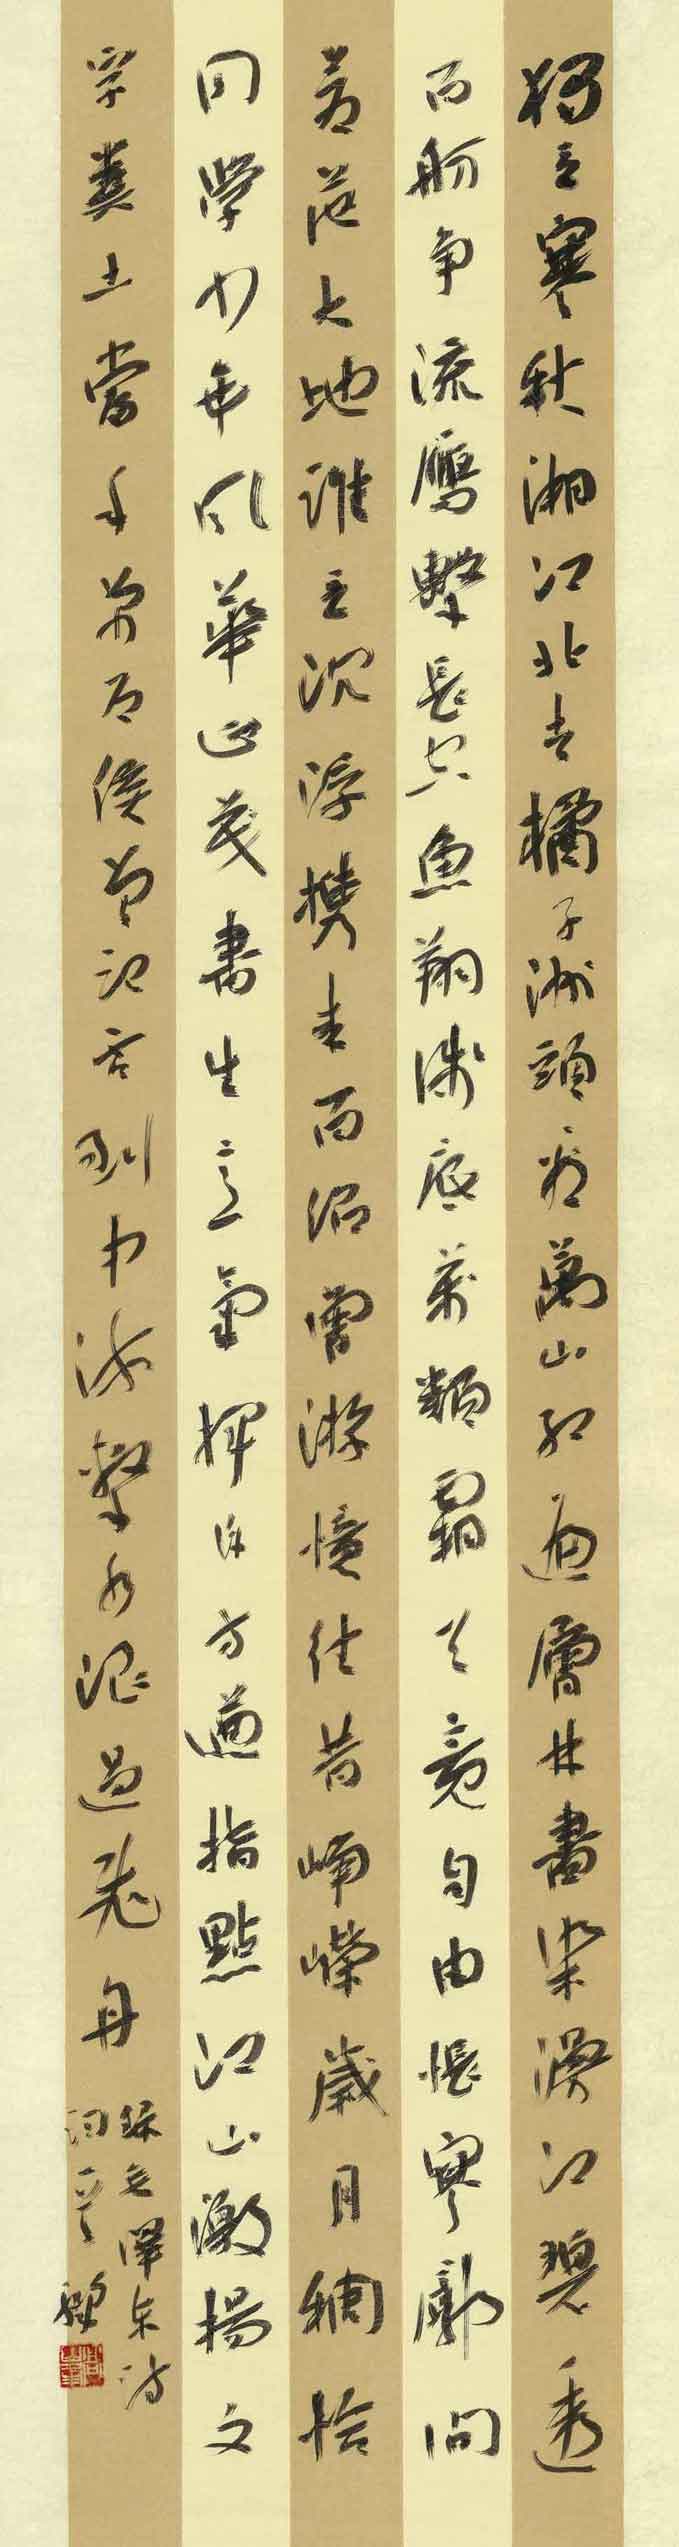 獨立寒秋湘江北去橘子洲頭看萬山紅遍層林盡染漫江碧透
百舸争流鷹擊長空魚翔淺底萬類霜天競自由悵寥廓問
蒼茫大地誰主沉浮攜來百侶曾游憶往昔崢嶸歲月稠恰
同學少年風華正茂書生意氣揮斥方遒指點江山激揚文
字糞土當年萬户侯曾記否到中流擊水浪遏飛舟
錄毛澤東詩
詞一首